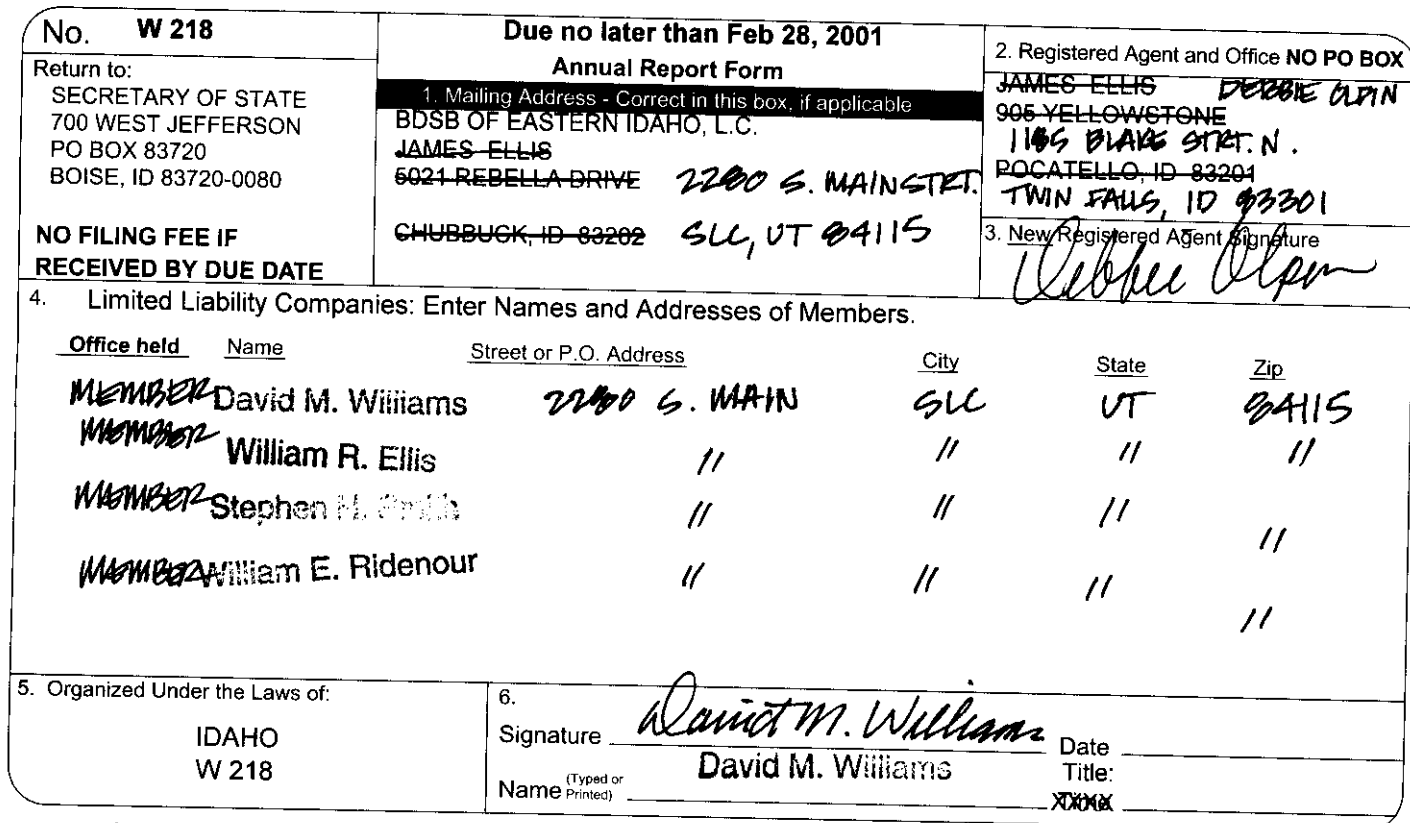 No. W 218
Return to:
SECRETARY OF STATE
700 WEST JEFFERSON
PO BOX 83720
BOISE, ID 83720-0080
NO FILING FEE IF
RECEIVED BY DUE DATE
Due no later than Feb 28, 2001
Annual Report Form
1. Mailing Address - Correct in this box, if applicable
BDSB OF EASTERN IDAHO, L.C.
JAMES ELLIS
5021 REBELLA DRIVE 2280 S. MAIN STRT.
CHUBBUCK, ID 83202 SLC, UT 84115
2. Registered Agent and Office NO PO BOX
JAMES ELLIS DEBBIE OLPIN
905 YELLOWSTONE
BLAKE STRT. N.
POCATELLO, ID 83201
TWIN FALLS, ID 83301
3. New Registered Agent Signature
Debbie Olpin
4. Limited Liability Companies: Enter Names and Addresses of Members.
Office held Name Street or P.O. Address City State Zip
MEMBER David M. Williams 2280 S. MAIN SLC UT 84115
MEMBER William R. Ellis // // // //
MEMBER Stephen H. Smith // // // //
MEMBER William E. Ridenour // // // //
5. Organized Under the Laws of:
IDAHO
W 218
6.
Signature David M. Williams Date
Name (Typed or Printed) David M. Williams Title: